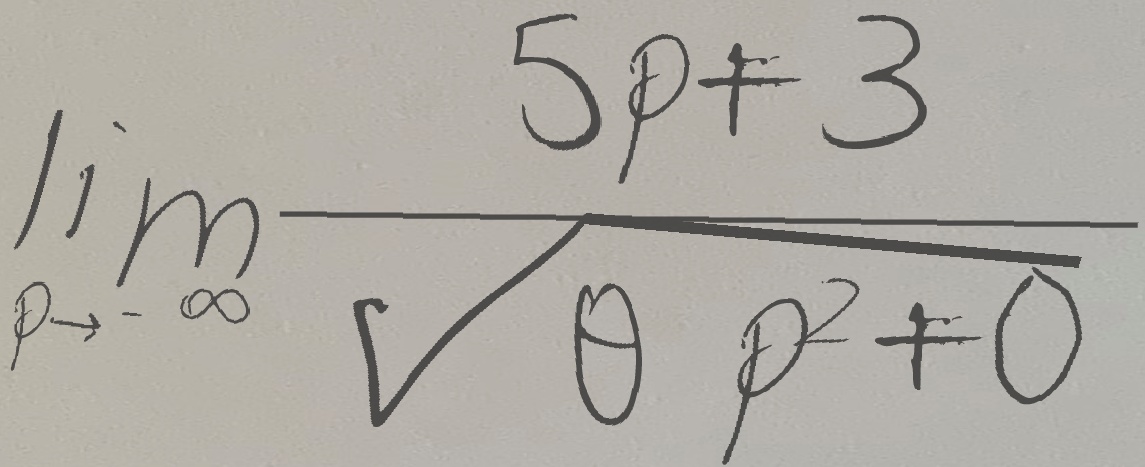 \lim_{p \to -\infty} \frac{5p+3}{\sqrt{\theta p^2+0}}